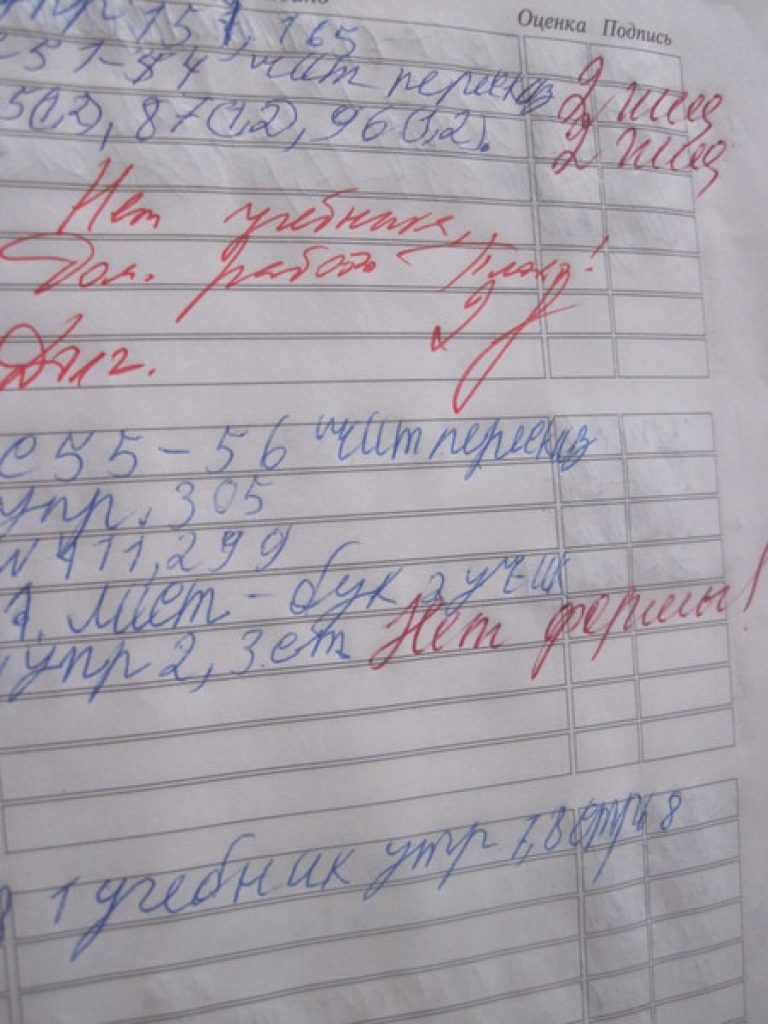 Оценка Подпись
упр 157, 165
с 51-54 чит пересказ 2
5(1,2), 87(1,2), 96(1,2). 2
Нет учебника,
Дом. работа - Плохо!
2
с 55-56 чит пересказ
упр. 305
N 411, 299
1. лист - бук а уч-ик
упр 2, 3 ст Нет формы!
1 учебник упр 7,8 стр 8